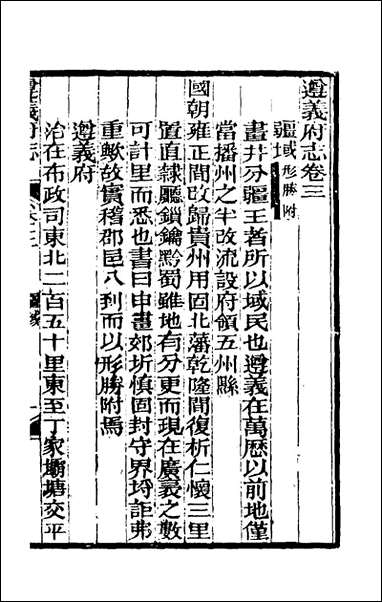 遵義府志卷三
疆域形勝附
畫井分疆王者所以域民也遵義在萬歷以前地僅
當播州之半改流設府領五州縣
國朝雍正間改歸貴州用固北藩乾隆間復析仁懷三里
置直隸廳鎖鑰黔蜀雖地有分更而現在廣袤之數
可計里而悉也書曰申畫郊圻慎固封守界埒詎弗
重歟故實稽郡邑八到而以形勝附焉
遵義府
治在布政司東北二百五十里東至丁家壩塘交平
遵義府志
卷三
疆域
一